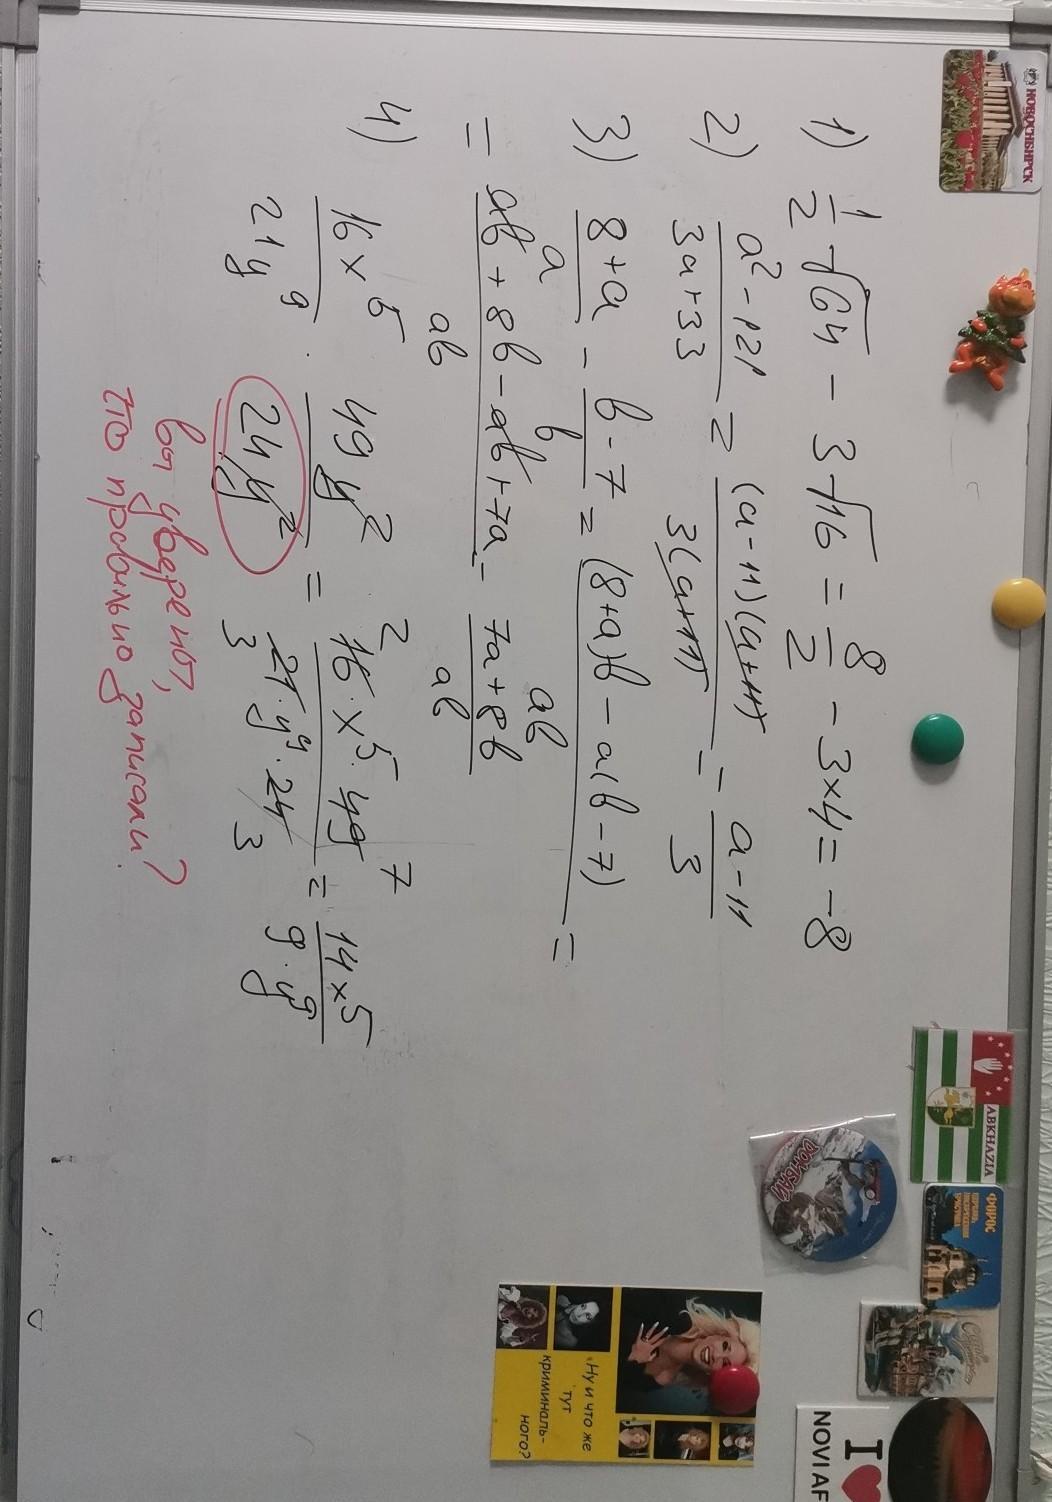 1) 1/2 √64 − 3√16 = 8/2 − 3×4 = −8
2) a² − 121 / 3a + 33 = (a − 11)(a + 11) / 3(a + 11) = a − 11 / 3
3) 8 + a / a − b − 7 / b = (8 + a)b − a(b − 7) / ab =
= ab + 8b − ab + 7a / ab = 7a + 8b / ab
4) 16x⁵ / 21y⁹ · 49y² / 24y² = 2 16 · x⁵ · 49 7 / 3 21 · y⁹ · 24 3 = 14x⁵ / 9 · y⁹
вы уверены,
что правильно записали?
НОВОСИБИРСК
ABKHAZIA
ДОМБАЙ
ФОРОС
«Ну и что же
тут
криминаль-
ного?
I ❤
NOVI AF